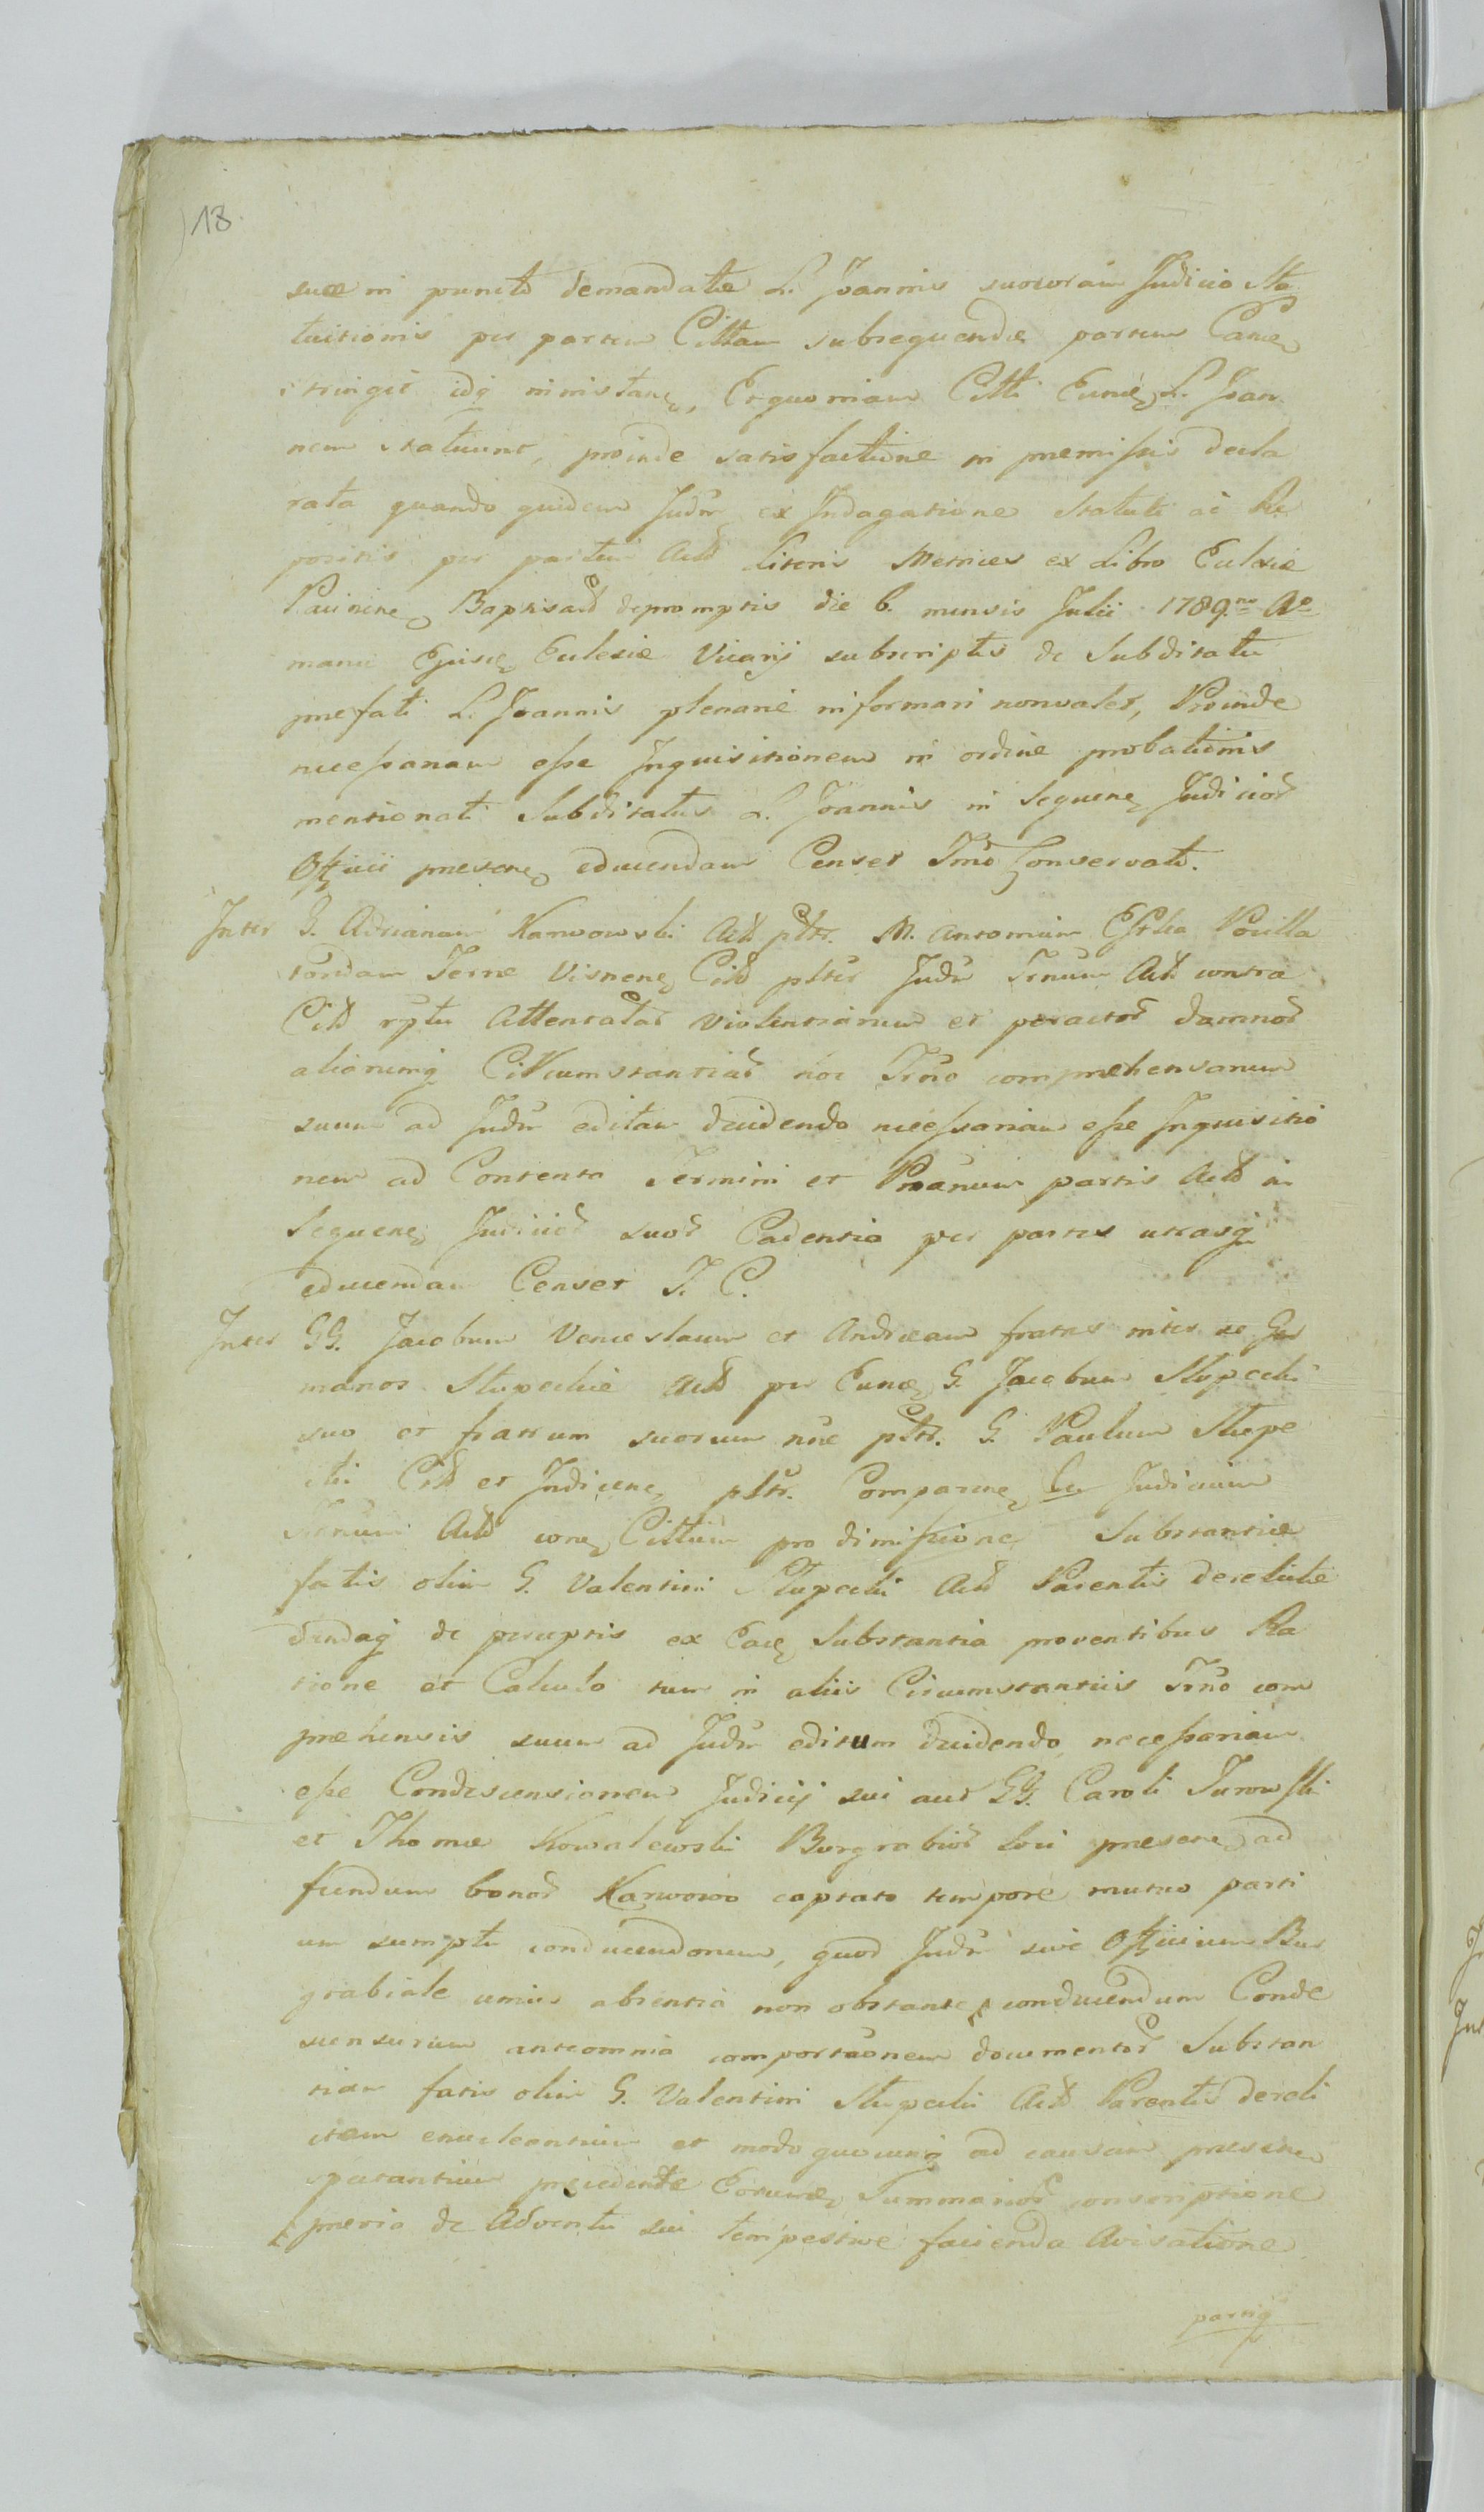 18.
suæ in puncto demandatæ L. Joannis suorum Judicio Sta
tuitionis per partem Cittam subsequendæ partem Cane
stringit idq ministane, Et quoniam Citti Eunde L. Joan
nem statuunt, proinde satisfactione in premissis decla
rata quando quidem Judm ex Indagatione Statuti ac Re
positis per partem Actd Literis Metrices ex Libro Eclesiæ
Baptisatd depromptis die 6. mensis Julii 1789.no Ao
manu Ejusde Eclesiæ Vicarij subscriptis de Subditatu
prefati L. Joannis plenarie informari nonvalet, Proinde
necessariam esse Inquisitionem in ordine probationis
mentionati Subditatus L. Joannis in Sequene Judiciod
Officii presene educendam Censet Trno Conservato.
Inter G. Adrianum Karwowski Actd pltr. M. Antonium
Terræ Visnene Citd pltr Judm Trnum Actd contra
Citd rptu Attentatad violentiarum et peractod damnod
aliarumq Circumstantiad hoc Trno comprehensarum
suum ad Judm editam decidendo necessariam esse Inquisitio
nem ad Contenta Termini et partis Actd in
Sequene Judiciod suod Cadentia per partes utrasq
educendam Censet T. C.
Inter GG. Jacobum Venceslaum et Andream fratres inter se Ger
manos Stupeckie Actd per Eunde G. Jacobum Stupecki
suo et fratrum suorum nne pltr. G. Paulum Stupe
cki Citd et Indicene pltr. Comparene Judicium
Trnum Actd cone Cittum pro dimissione Substantiæ
fatis olim G. Valentini Stupecki Actd Parentis derelictæ
dendaq de perceptis ex Eade Substantia proventibus Ra
tione et Calculo tum in aliis Circumstantiis Trno com
prehensis suum ad Judm editum decidendo necessariam
esse Condescensionem Judicij sui aut GG. Caroli Turowski
et Thomæ Kowalewski Burgrabiod loci presene ad
fundum bonod Karwowo captato tempore mutuo parti
um sumptu conducendorum, quod Judm sive Officium Bur
grabiale unius absentia non obstante conducendum Conde
scensurum anteomnia comportaonem documentod Substan
tiam fatis olim G. Valentini Stupecki Actd Parentis dereli
ctam enucleantium et modo quocunq ad causam presene
spectantium precedente Eorunde Summariod conscriptione
previa de Adventu sui tempestive facienda Avisatione
partiq